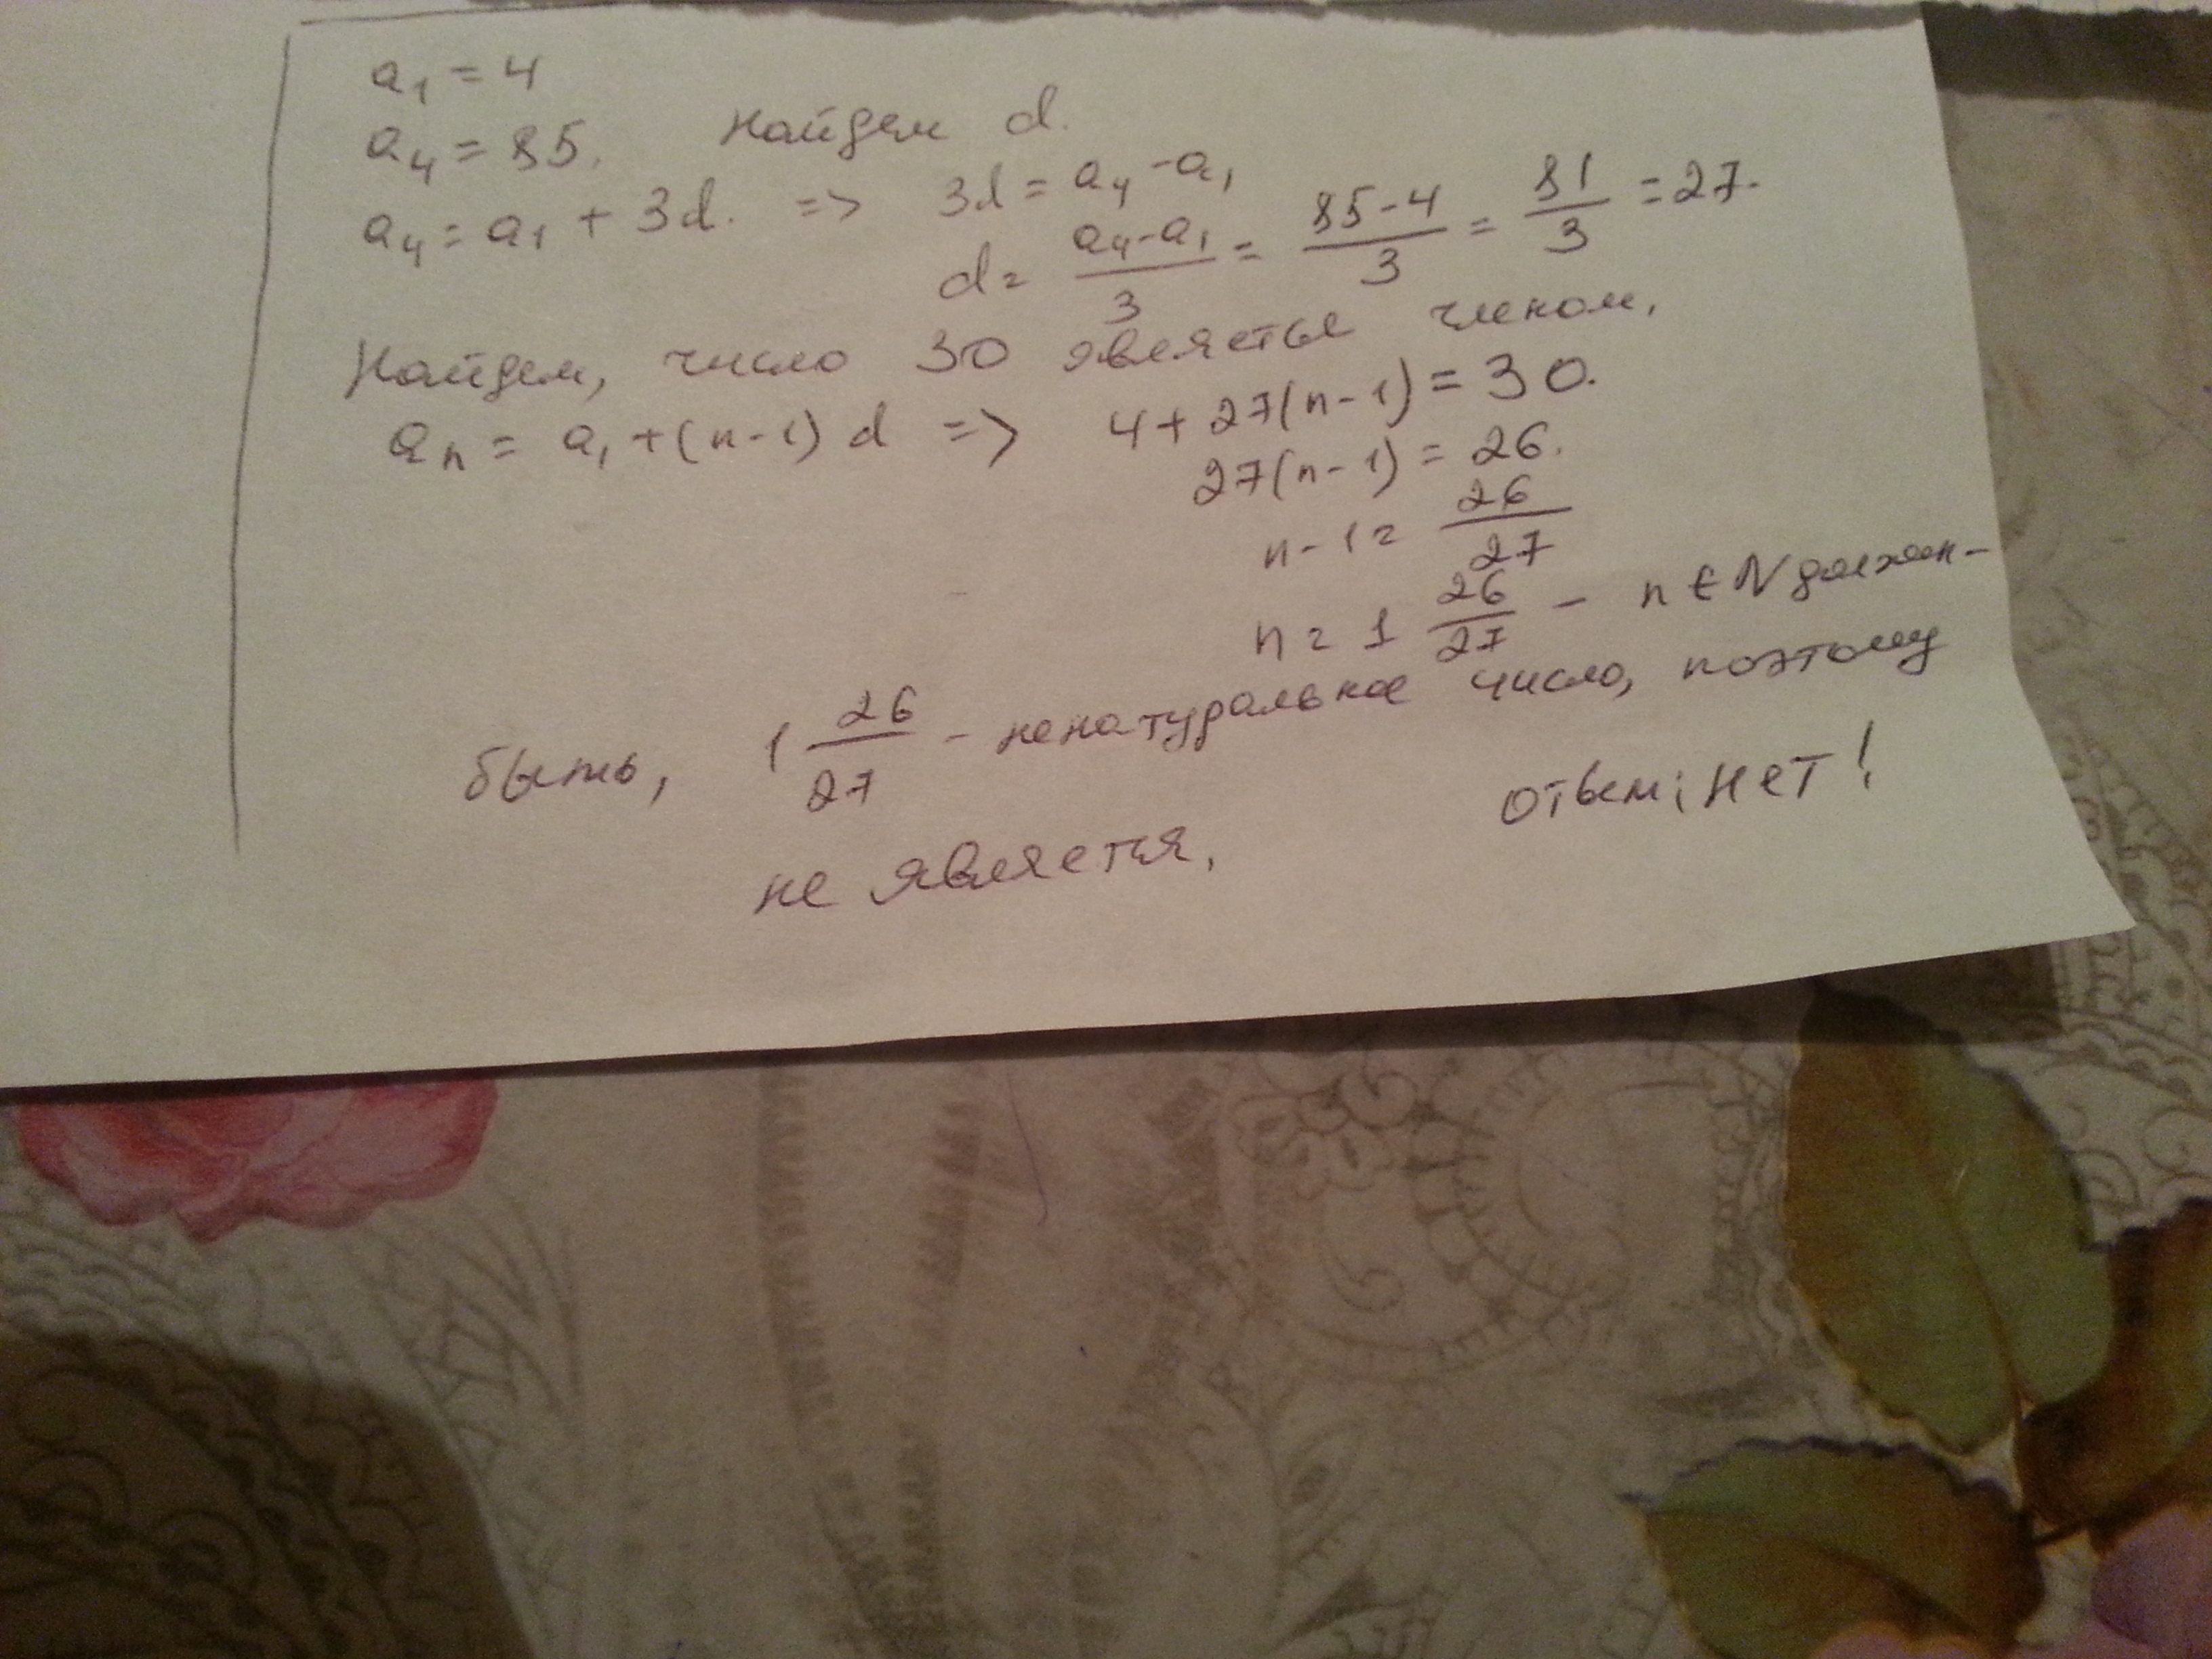 a₁ = 4
a₄ = 85. Найдем d.
a₄ = a₁ + 3d. => 3d = a₄ - a₁
d = (a₄ - a₁)/3 = (85 - 4)/3 = 81/3 = 27.
Найдем, число 30 является членом.
aₙ = a₁ + (n-1) d => 4 + 27(n-1) = 30.
27(n-1) = 26.
n - 1 = 26/27
n = 1 26/27 - n ∈ N должен-
быть, 1 26/27 - ненатуральное число, поэтому
не является. ответ: нет!